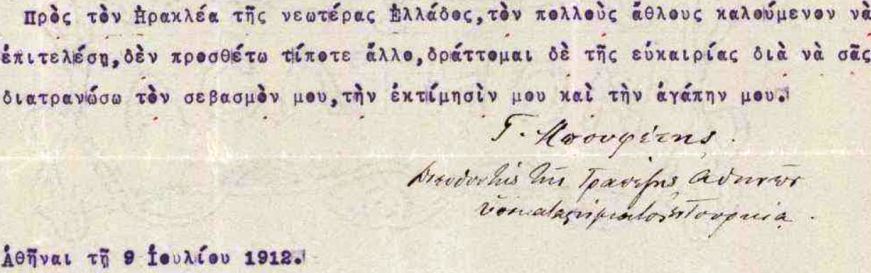 Πρὸς τὸν Ἡρακλέα τῆς νεωτέρας Ἑλλάδος,τὸν πολλοὺς ἄθλους καλούμενον νὰ
ἐπιτελέσῃ,δὲν προσθέτω τίποτε ἄλλο,δράττομαι δὲ τῆς εὐκαιρίας διὰ νὰ σᾶς
διατρανώσω τὸν σεβασμὸν μου,τὴν ἐκτίμησὶν μου καὶ τὴν ἀγάπην μου.
Γ. Μπουφέτης.
Διευθυντὴς τῆς Τραπέζης Ἀθηνῶν
Τουρκίᾳ.
Ἀθῆναι τῇ 9 Ἰουλίου 1912.